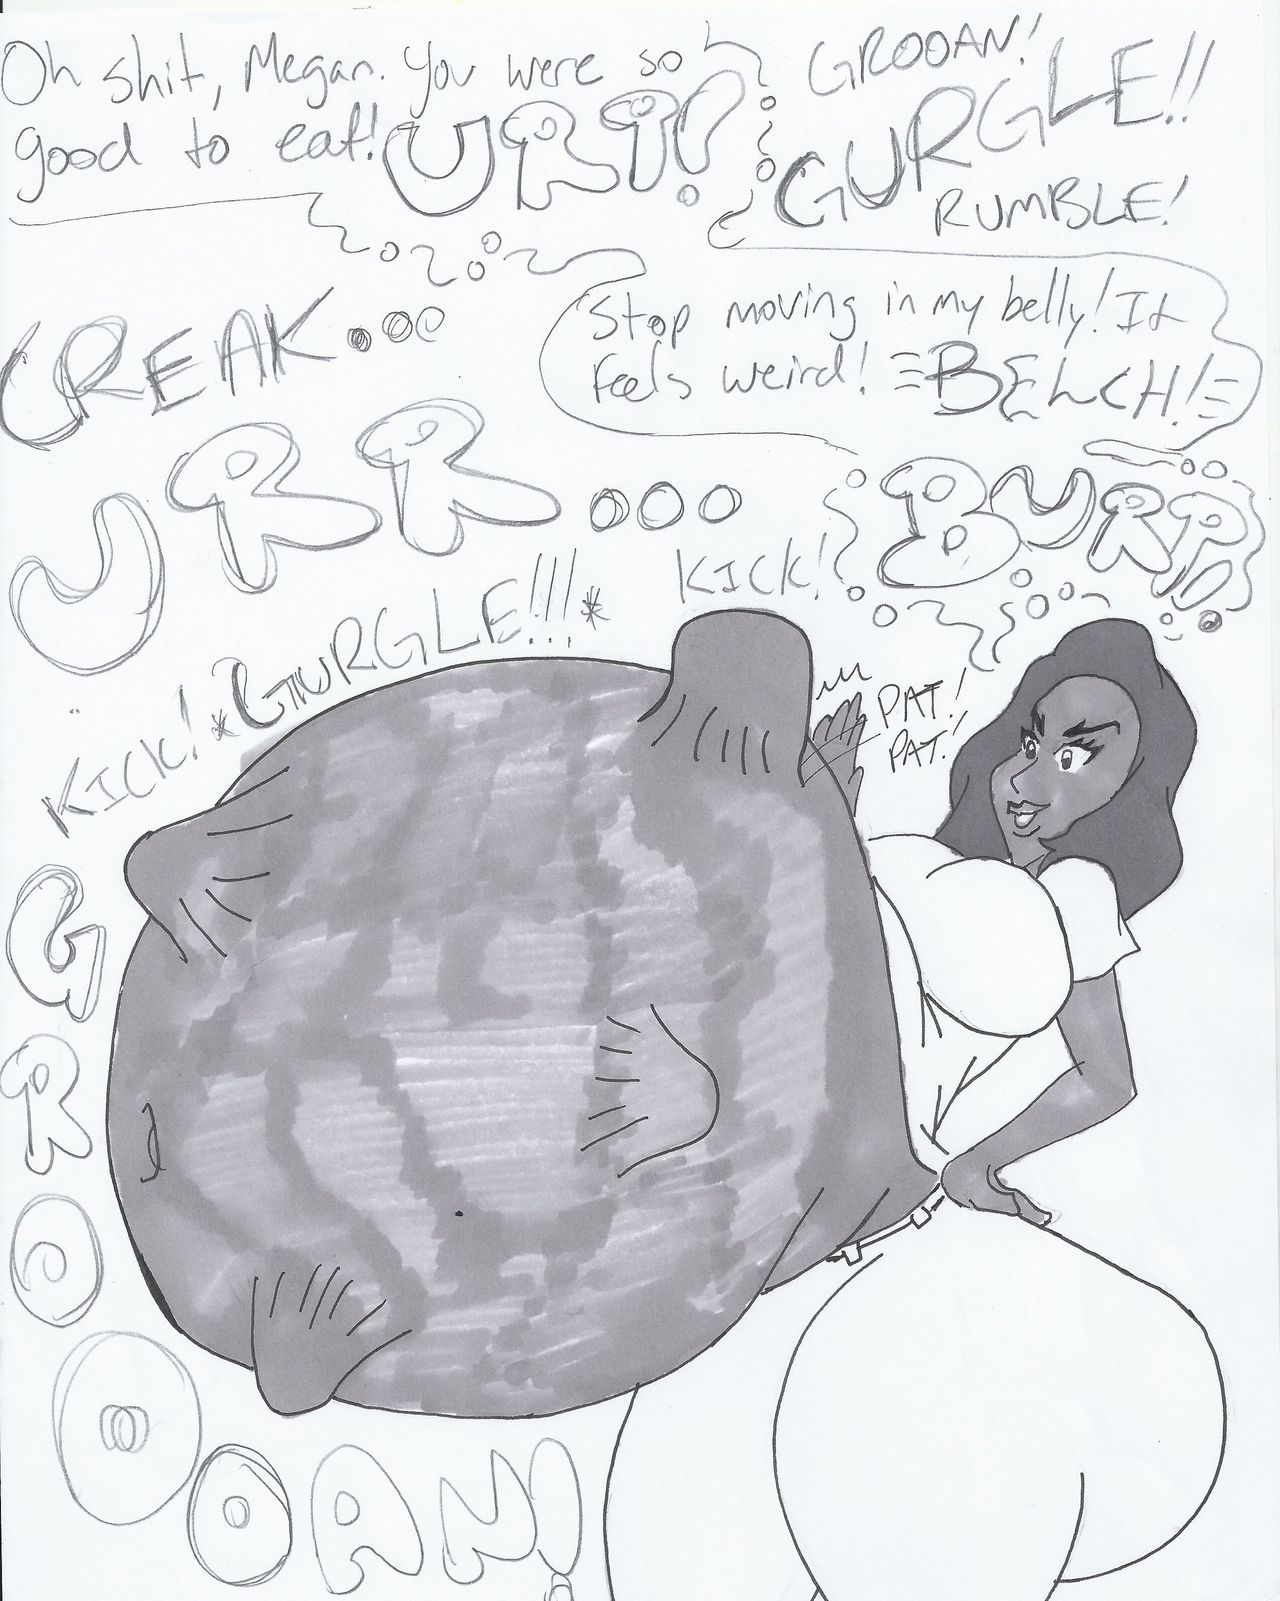 Oh shit, Megan. You were so
good to eat! URP!
GROOAN!
GURGLE!!
RUMBLE!
CREAK...
Stop moving in my belly! It
feels weird! BELCH!
URR...
BURP!
KICK!
KICK! *GURGLE!!!*
PAT!
PAT!
GROOOAN!